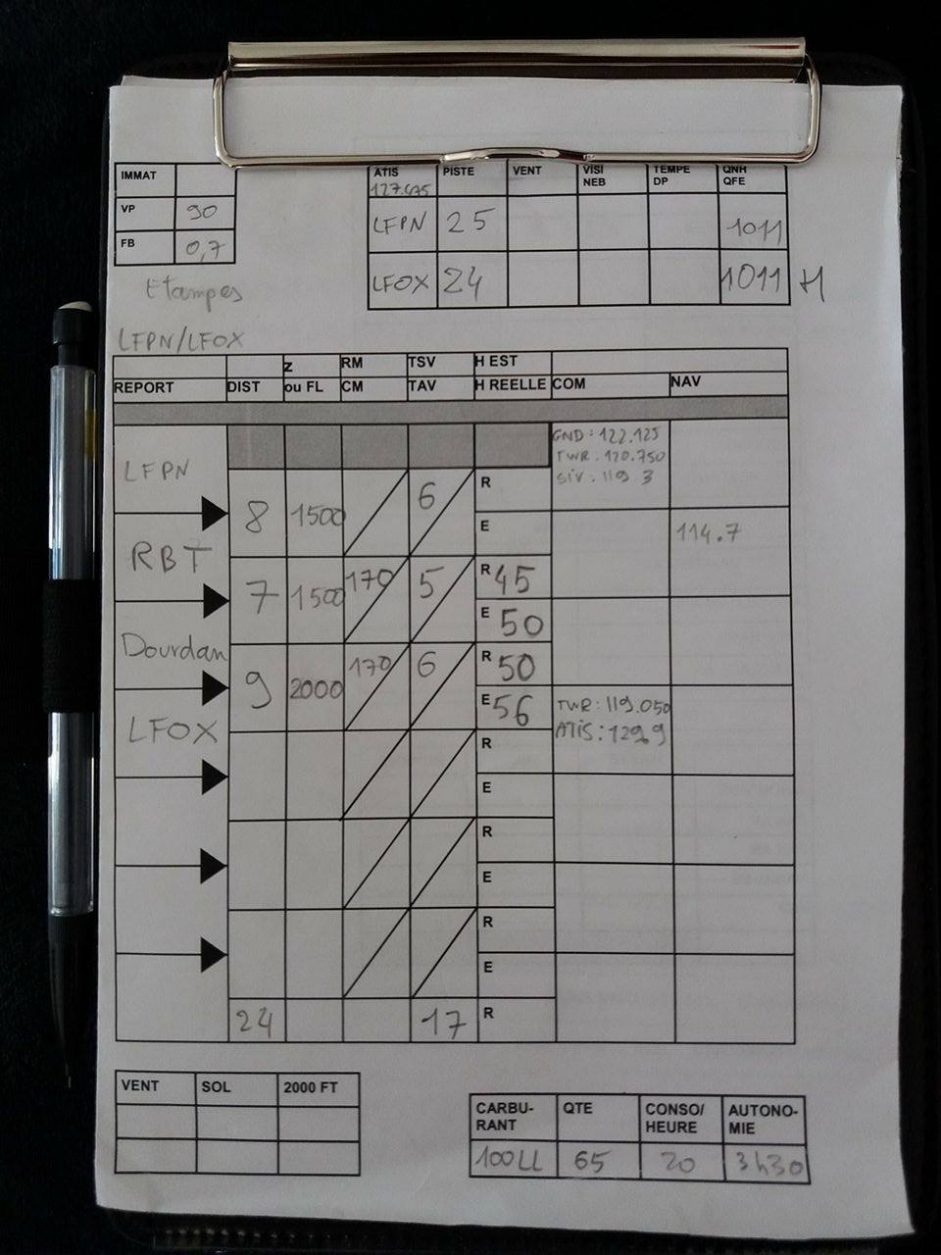 IMMAT
VP 90
FB 0,7
Etampes
LFPN/LFOX
ATIS PISTE VENT VISI TEMPE QNH
127.475 NEB DP QFE
LFPN 25 1011
LFOX 24 1011 H
Z RM TSV H EST
REPORT DIST ou FL CM TAV H REELLE COM NAV
GND : 122.125
TWR : 120.750
LFPN SIV : 119 3
R
8 1500 6
E 114.7
RBT
R 45
7 1500 170 5
E 50
Dourdan
R 50
9 2000 170 6
E 56 TWR : 119.050
LFOX ATIS : 129.9
R
E
R
E
R
E
24 17 R
VENT SOL 2000 FT
CARBU- QTE CONSO/ AUTONO-
RANT HEURE MIE
100LL 65 20 3h30